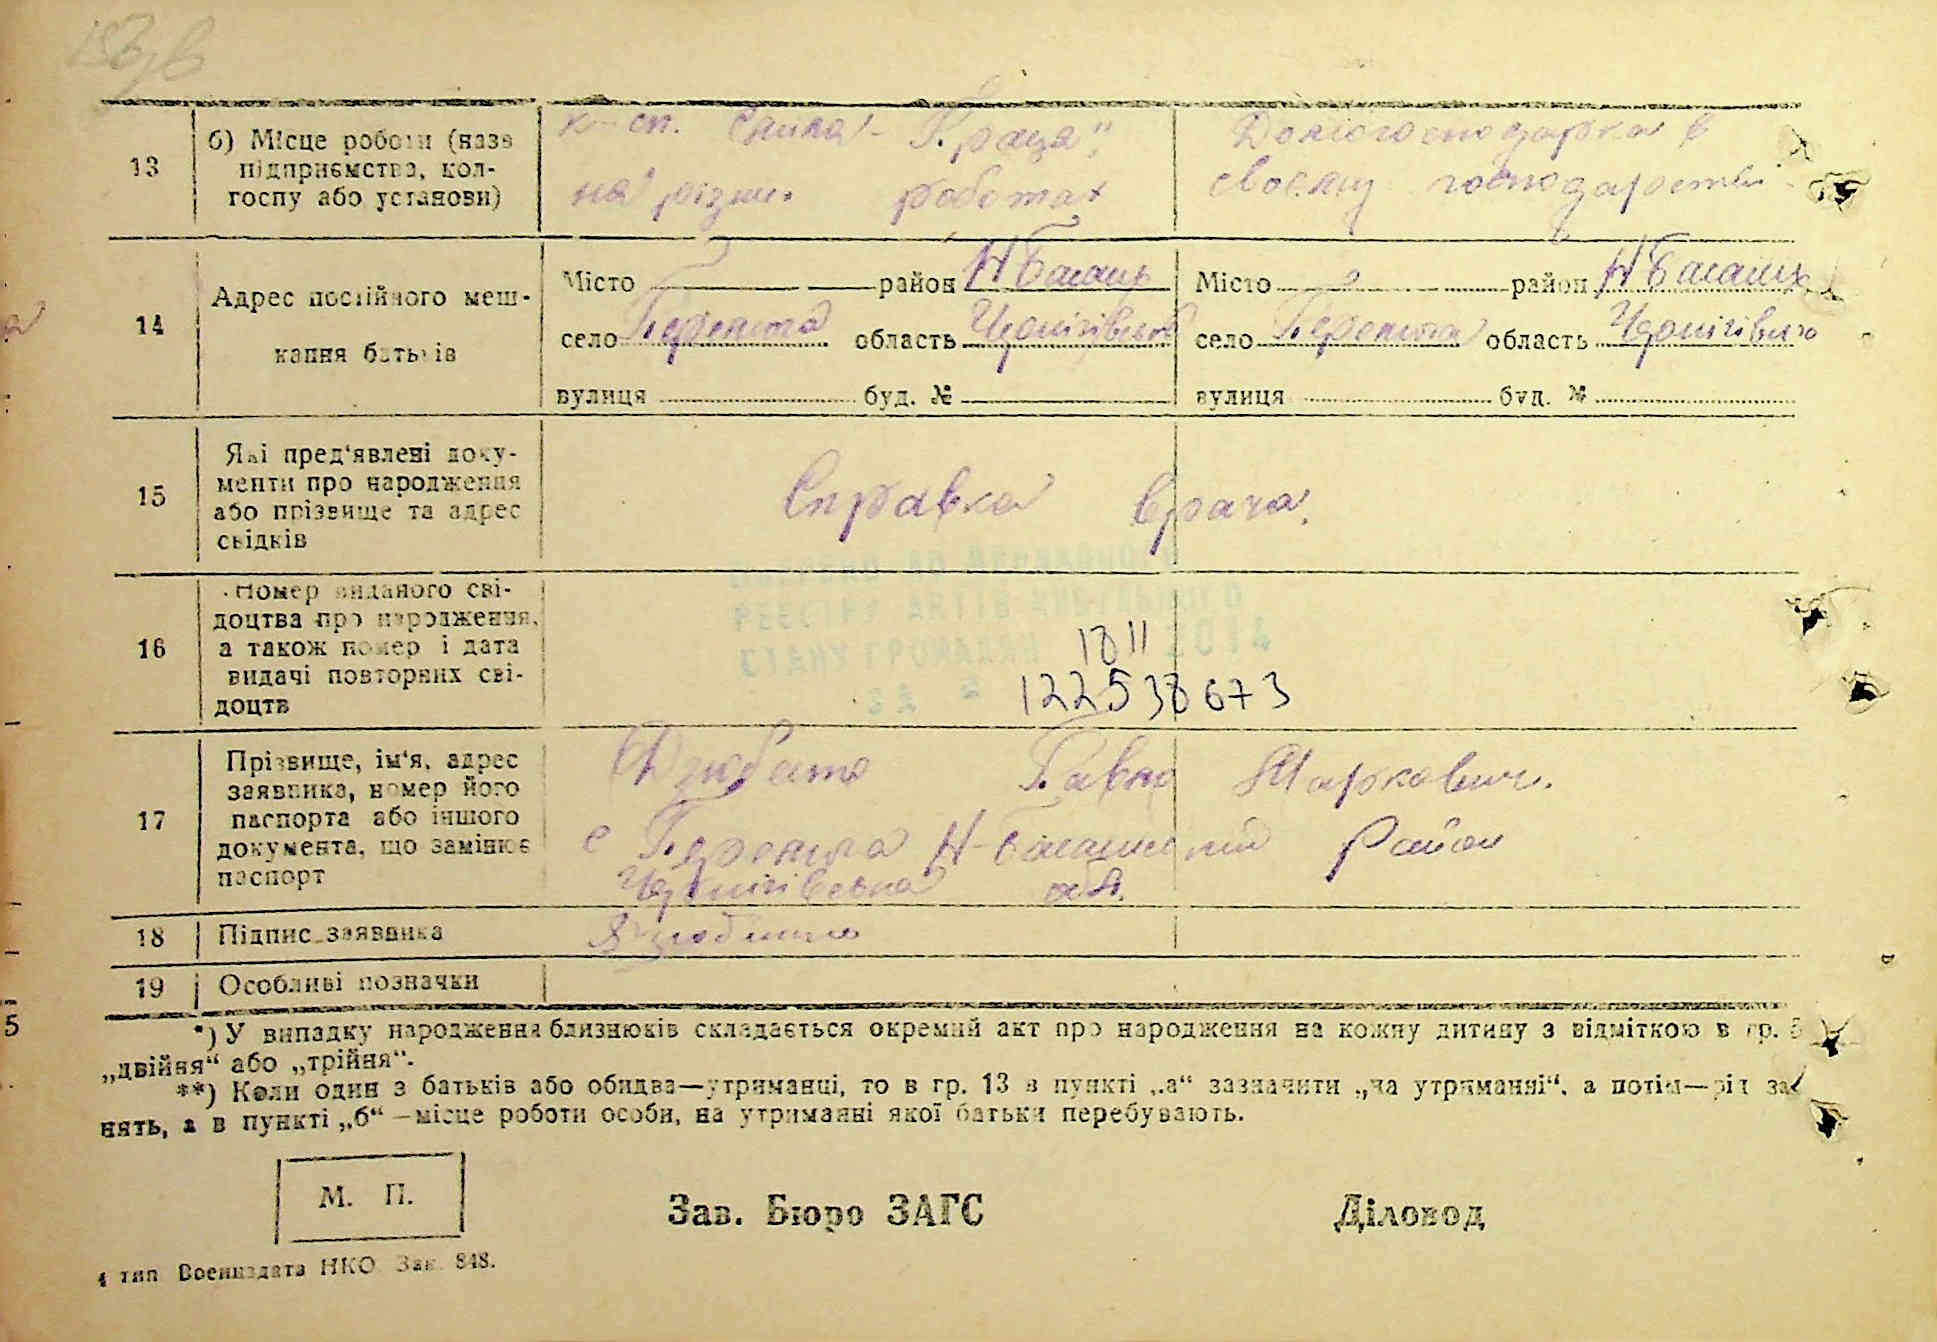 13
б) Місце роботи (назв
підприємства, кол-
госпу або установи)
сп. Спілка „Праця"
на різних роботах
Домогосподарка в
своєму господарстві
14
Адрес постійного меш-
кання батьків
Місто район Н Басань
село Перемога область Чернігівська
вулиця буд. №
Місто район Н Басань
село Перемога область Чернігівська
вулиця буд. №
15
Які пред'явлені доку-
менти про народження
або прізвище та адрес
свідків
Справка врача.
16
Номер виданого сві-
доцтва про народження,
а також номер і дата
видачі повторних сві-
доцтв
ВНЕСЕНО ДО ДЕРЖАВНОГО
РЕЄСТРУ АКТІВ ЦИВІЛЬНОГО
СТАНУ ГРОМАДЯН 18 11 2014
ЗА № 122538673
17
Прізвище, ім'я, адрес
заявника, номер його
паспорта або іншого
документа, що замінює
паспорт
Дзюбато Павло Маркович.
с Перемога Н-Басанський Район
Чернігівська обл.
18
Підпис заявника
19
Особливі позначки
*) У випадку народження близнюків складається окремий акт про народження на кожну дитину з відміткою в гр. 5
„двійня" або „трійня".
**) Коли один з батьків або обидва—утриманці, то в гр. 13 в пункті „а" зазначити „на утриманні", а потім—рід за
нять, а в пункті „б" —місце роботи особи, на утриманні якої батьки перебувають.
М. П.
Зав. Бюро ЗАГС
Діловод
4 тип Воениздата НКО Зак. 848.